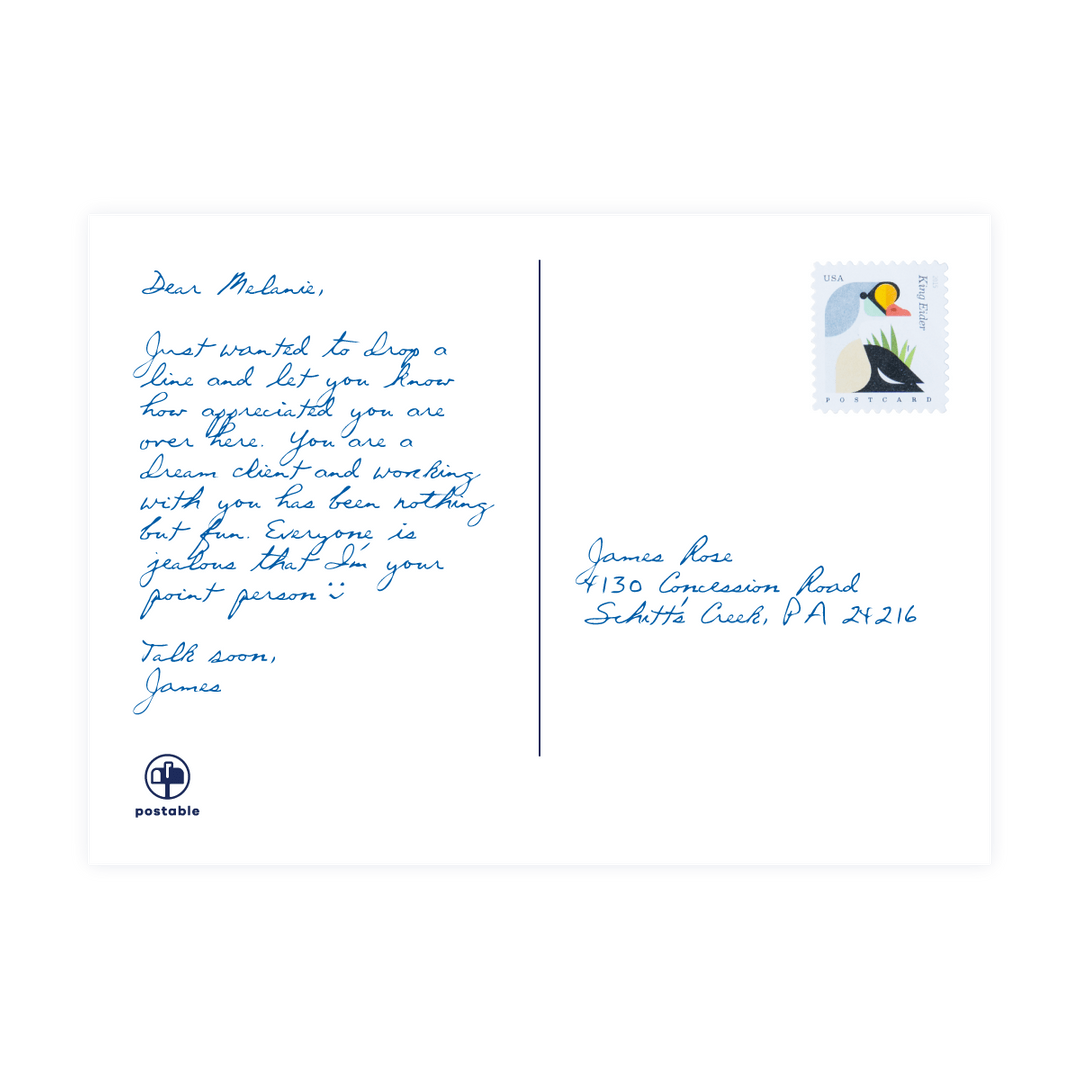 Dear Melanie,
Just wanted to drop a
line and let you know
how appreciated you are
over here. You are a
dream client and working
with you has been nothing
but fun. Everyone is
jealous that I'm your
point person :)
Talk soon,
James
postable
USA
King Eider
POSTCARD
James Rose
4130 Concession Road
Schitt's Creek, PA 24216